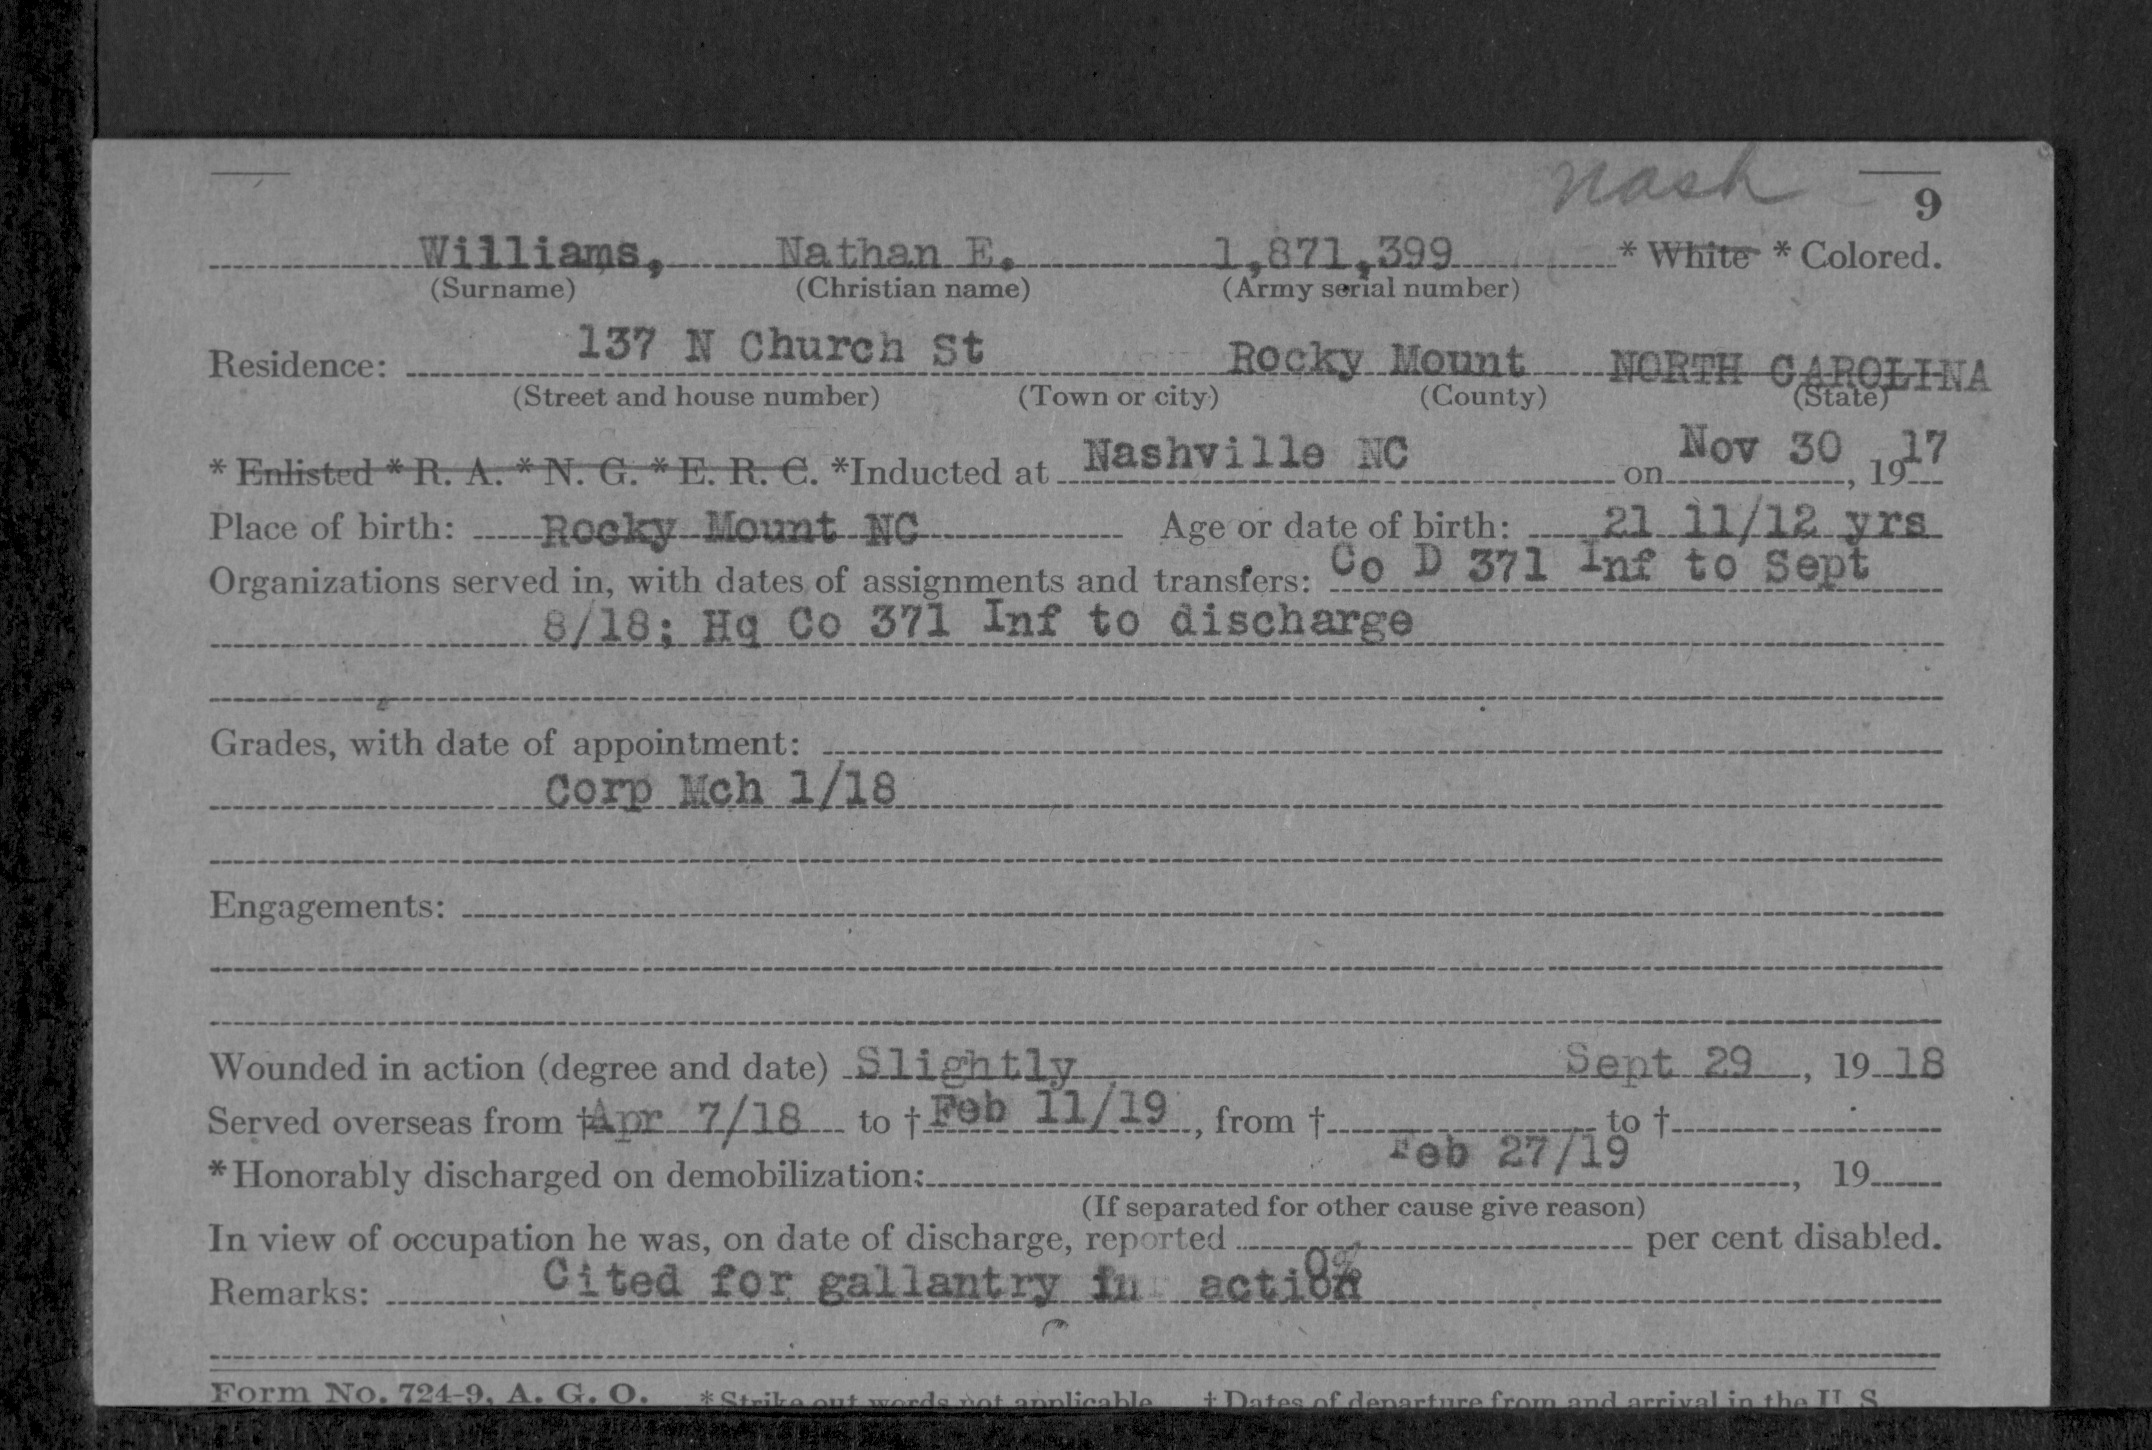 Nash
9
Williams, Nathan E. 1,871,399 * White * Colored.
(Surname) (Christian name) (Army serial number)
Residence: 137 N Church St Rocky Mount NORTH CAROLINA
(Street and house number) (Town or city) (County) (State)
* Enlisted * R. A. * N. G. * E. R. C. *Inducted at Nashville NC on Nov 30, 1917
Place of birth: Rocky Mount NC Age or date of birth: 21 11/12 yrs
Organizations served in, with dates of assignments and transfers: Co D 371 Inf to Sept
8/18; Hq Co 371 Inf to discharge
Grades, with date of appointment:
Corp Mch 1/18
Engagements:
Wounded in action (degree and date) Slightly Sept 29, 1918
Served overseas from † Apr 7/18 to † Feb 11/19, from † to †
* Honorably discharged on demobilization: Feb 27/19, 19
(If separated for other cause give reason)
In view of occupation he was, on date of discharge, reported 0% per cent disabled.
Remarks: Cited for gallantry in action
Form No. 724-9, A. G. O. * Strike out words not applicable † Dates of departure from and arrival in the U S